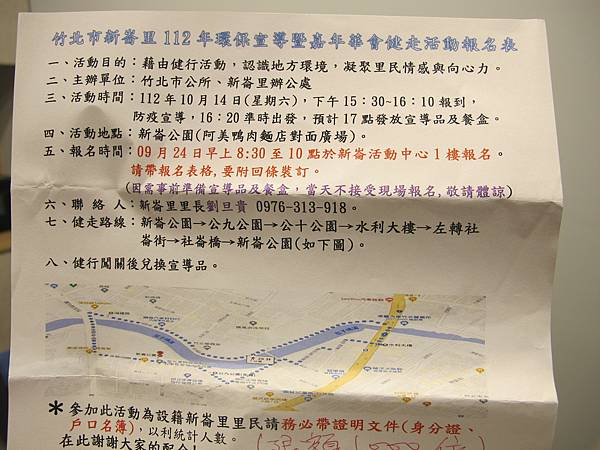 竹北市新崙里112年環保宣導暨嘉年華會健走活動報名表
一、活動目的：藉由健行活動，認識地方環境，凝聚里民情感與向心力。
二、主辦單位：竹北市公所、新崙里辦公處
三、活動時間：112年10月14日(星期六)，下午15：30~16：10報到，
防疫宣導，16：20準時出發，預計17點發放宣導品及餐盒。
四、活動地點：新崙公園(阿美鴨肉麵店對面廣場)。
五、報名時間：09月24日早上8:30至10點於新崙活動中心1樓報名。
請帶報名表格,要附回條裝訂。
(因需事前準備宣導品及餐盒，當天不接受現場報名,敬請體諒)
六、聯 絡 人：新崙里里長劉旦貴 0976-313-918。
七、健走路線：新崙公園→公九公園→公十公園→水利大樓→左轉社
崙街→社崙橋→新崙公園(如下圖)。
八、健行闖關後兌換宣導品。
＊參加此活動為設籍新崙里里民請務必帶證明文件(身分證、
戶口名簿)，以利統計人數。
在此謝謝大家的配合!